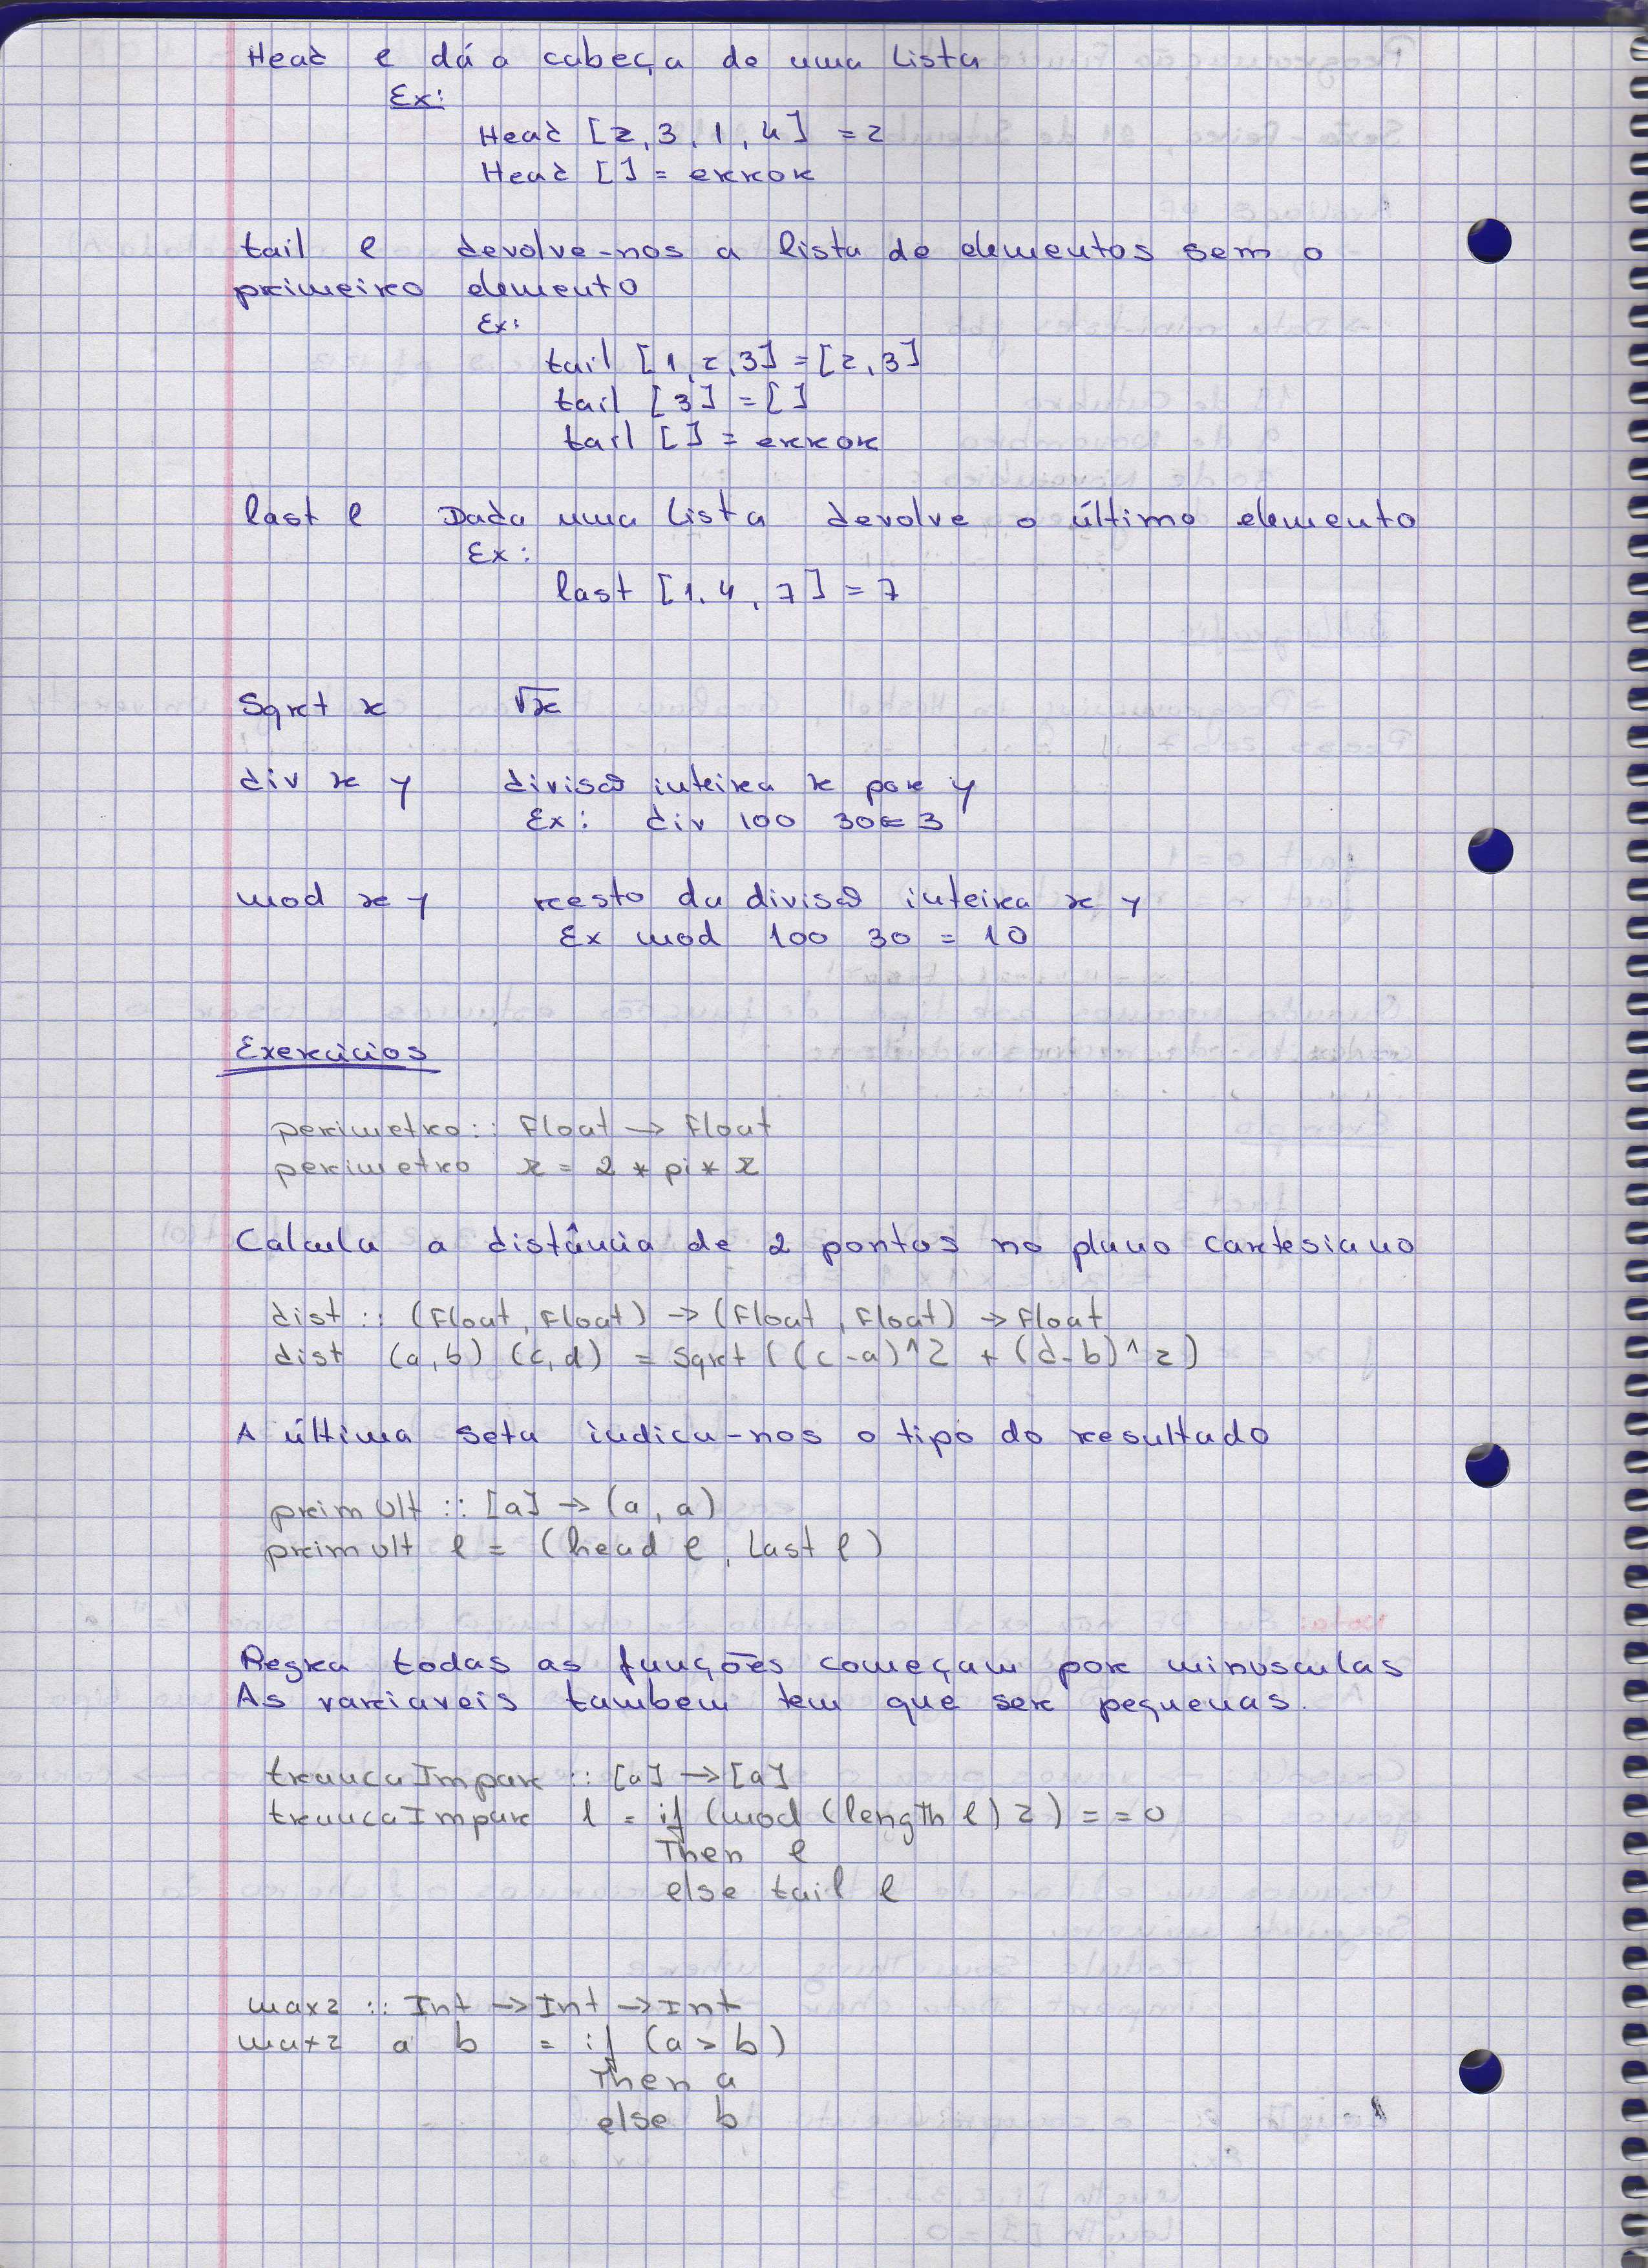 Head l dá a cabeça de uma lista
Ex:
Head [2, 3, 1, 4] = 2
Head [] = error
tail l devolve-nos a lista de elementos sem o
primeiro elemento
Ex:
tail [1, 2, 3] = [2, 3]
tail [3] = []
tail [] = error
last l Dada uma lista devolve o último elemento
Ex:
last [1, 4, 7] = 7
Sqrt x √x
div x y divisão inteira x por y
Ex: div 100 30 = 3
mod x y resto da divisão inteira x y
Ex mod 100 30 = 10
Exercicios
perimetro :: Float -> Float
perimetro r = 2 * pi * r
Calcula a distância de 2 pontos no plano cartesiano
dist :: (Float, Float) -> (Float, Float) -> Float
dist (a, b) (c, d) = Sqrt ((c-a)^2 + (d-b)^2)
A última seta indica-nos o tipo do resultado
primUlt :: [a] -> (a, a)
primUlt l = (head l, last l)
Regra todas as funções começam por minusculas
As variaveis tambem tem que ser pequenas.
truncaImpar :: [a] -> [a]
truncaImpar l = if (mod (length l) 2) == 0
Then l
else tail l
max2 :: Int -> Int -> Int
max2 a b = if (a > b)
Then a
else b